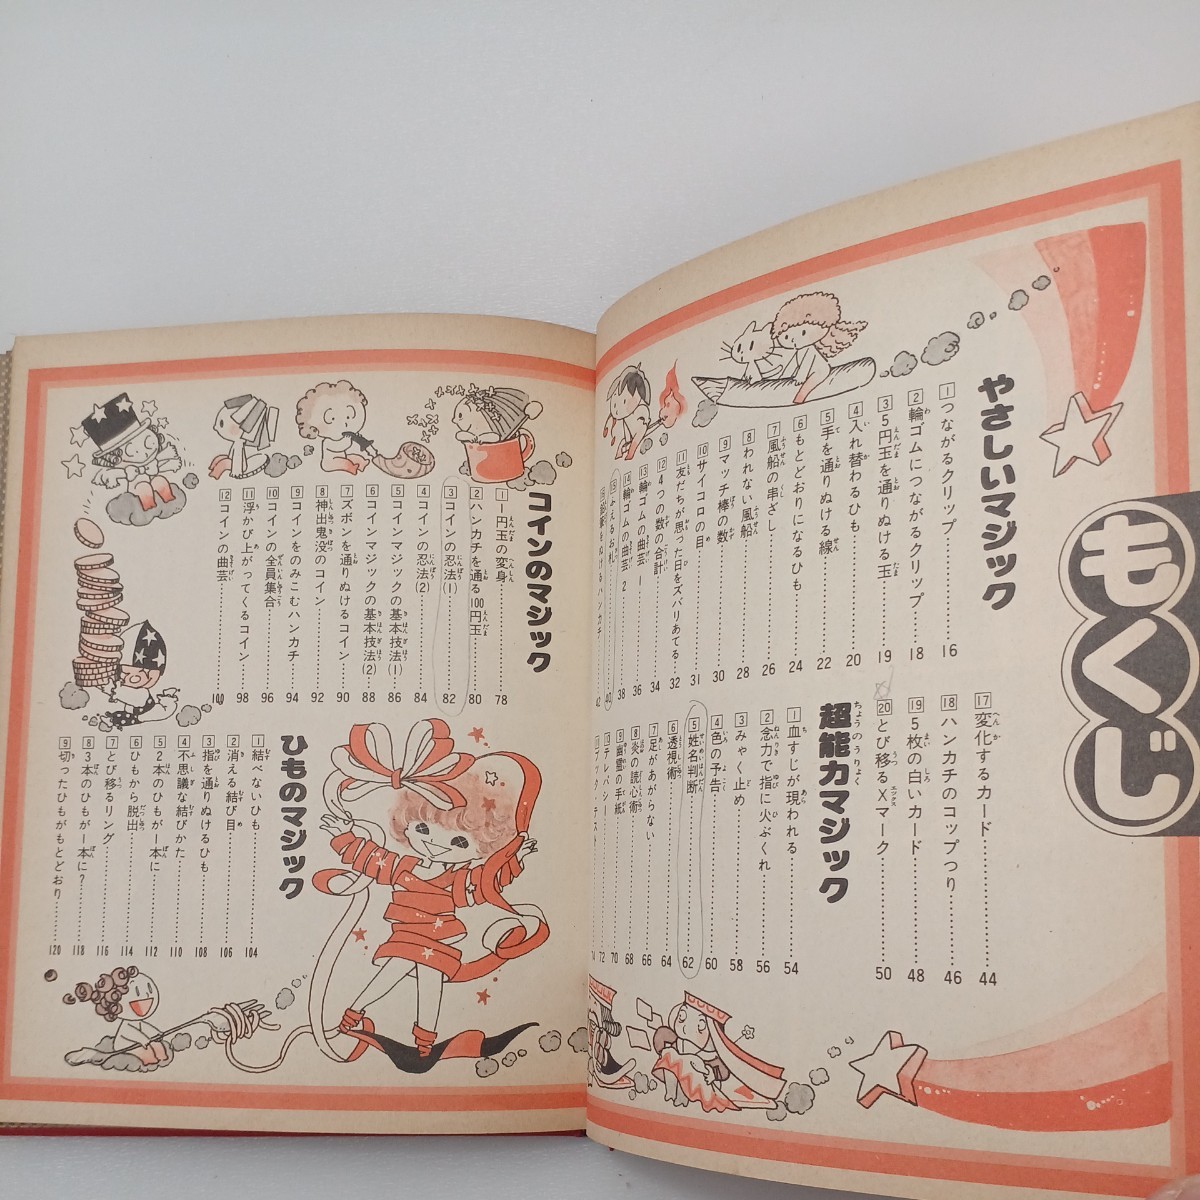 もくじ
やさしいマジック
1 つながるクリップ……16
2 輪ゴムにつながるクリップ……18
3 5円玉を通りぬける玉……19
4 入れ替わるひも……20
5 手を通りぬける線……22
6 もとどおりになるひも……24
7 風船の串ざし……26
8 われない風船……28
9 マッチ棒の数……30
10 サイコロの目……31
11 友だちが思った日をズバリあてる……32
12 4つの数の合計……34
13 輪ゴムの曲芸 1……36
14 輪ゴムの曲芸 2……38
15 ふえるお札……40
16 をぬけるハンカチ……42
17 変化するカード……44
18 ハンカチのコップつり……46
19 5枚の白いカード……48
20 とび移るXマーク……50
超能力マジック
1 血すじが現われる……54
2 念力で指に火ぶくれ……56
3 みゃく止め……58
4 色の予告……60
5 姓名判断……62
6 透視術……64
7 足があがらない……66
8 炎の読心術……68
9 幽霊の手紙……70
10 テレパシー……72
ブック・テスト……74
コインのマジック
1 1円玉の変身……78
2 ハンカチを通る100円玉……80
3 コインの忍法(1)……82
4 コインの忍法(2)……84
5 コインマジックの基本技法(1)……86
6 コインマジックの基本技法(2)……88
7 ズボンを通りぬけるコイン……90
8 神出鬼没のコイン……92
9 コインをのみこむハンカチ……94
10 コインの全員集合……96
11 浮かび上がってくるコイン……98
12 コインの曲芸……100
ひものマジック
1 結べないひも……104
2 消える結び目……106
3 指を通りぬけるひも……108
4 不思議な結びかた……110
5 2本のひもが1本に……112
6 ひもから脱出……114
7 とび移るリング……116
8 3本のひもが1本に?……118
9 切ったひもがもとどおり……120